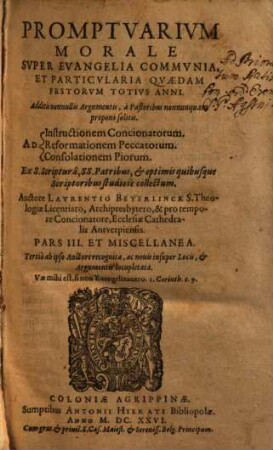 PROMPTVARIVM
MORALE
SVPER EVANGELIA COMMVNIA,
ET PARTICVLARIA QVÆDAM
FESTORVM TOTIVS ANNI.
Additis nonnullis Argumentis, à Pastoribus nonnunquam
proponi solitis.
Instructionem Concionatorum.
AD Reformationem Peccatorum.
Consolationem Piorum.
Ex S. Scripturâ, SS. Patribus, & optimis quibusque
scriptoribus studiosè collectum.
Auctore LAVRENTIO BEYERLINCK S. Theo-
logiæ Licentiato, Archipresbytero, & pro tem-
pore Concionatore, Ecclesiæ Cathedra-
lis Antverpiensis.
PARS III. ET MISCELLANEA.
Tertiò ab ipso Auctore recognita, ac novis insuper Locis, &
Argumentis locupletata.
Væ mihi est, si non Evangelizavero. 1. Corinth. c. 9.
COLONIÆ AGRIPPINÆ,
Sumptibus ANTONII HIERATI Bibliopolæ.
ANNO M. DC. XXVI.
Cum grat. & privil. S. Cæs. Maiest. & Sereniss. Belg. Principum.